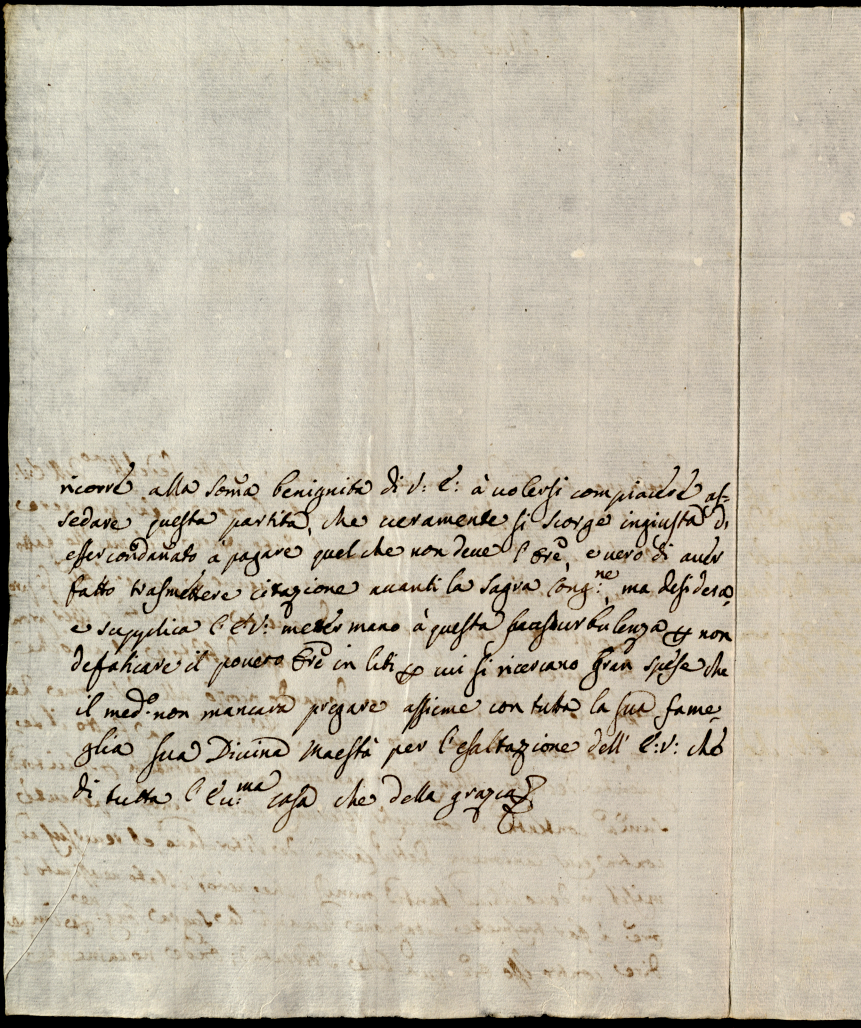 ricorre alla som̃a benignità di V: E: à volersi compiacere as-
sedare questa partita, che veramente si scorge ingiusta di
esser cond̃anato a pagare quel che non deve l'Ore, e vero di aver
fatto trasmettere citazione avanti la sagra Cong:ne, ma desidera,
e supplica l'E V: metter mano à questa turbulenza p non
defaticare il povero Ore in liti p cui si ricercano gran spese che
il med:o non mancarà pregare assieme con tutta la sua fame-
glia sua Divina Maestà per l'esaltazione dell' E: V: che
di tutta l'Ecc:ma casa che della grazia